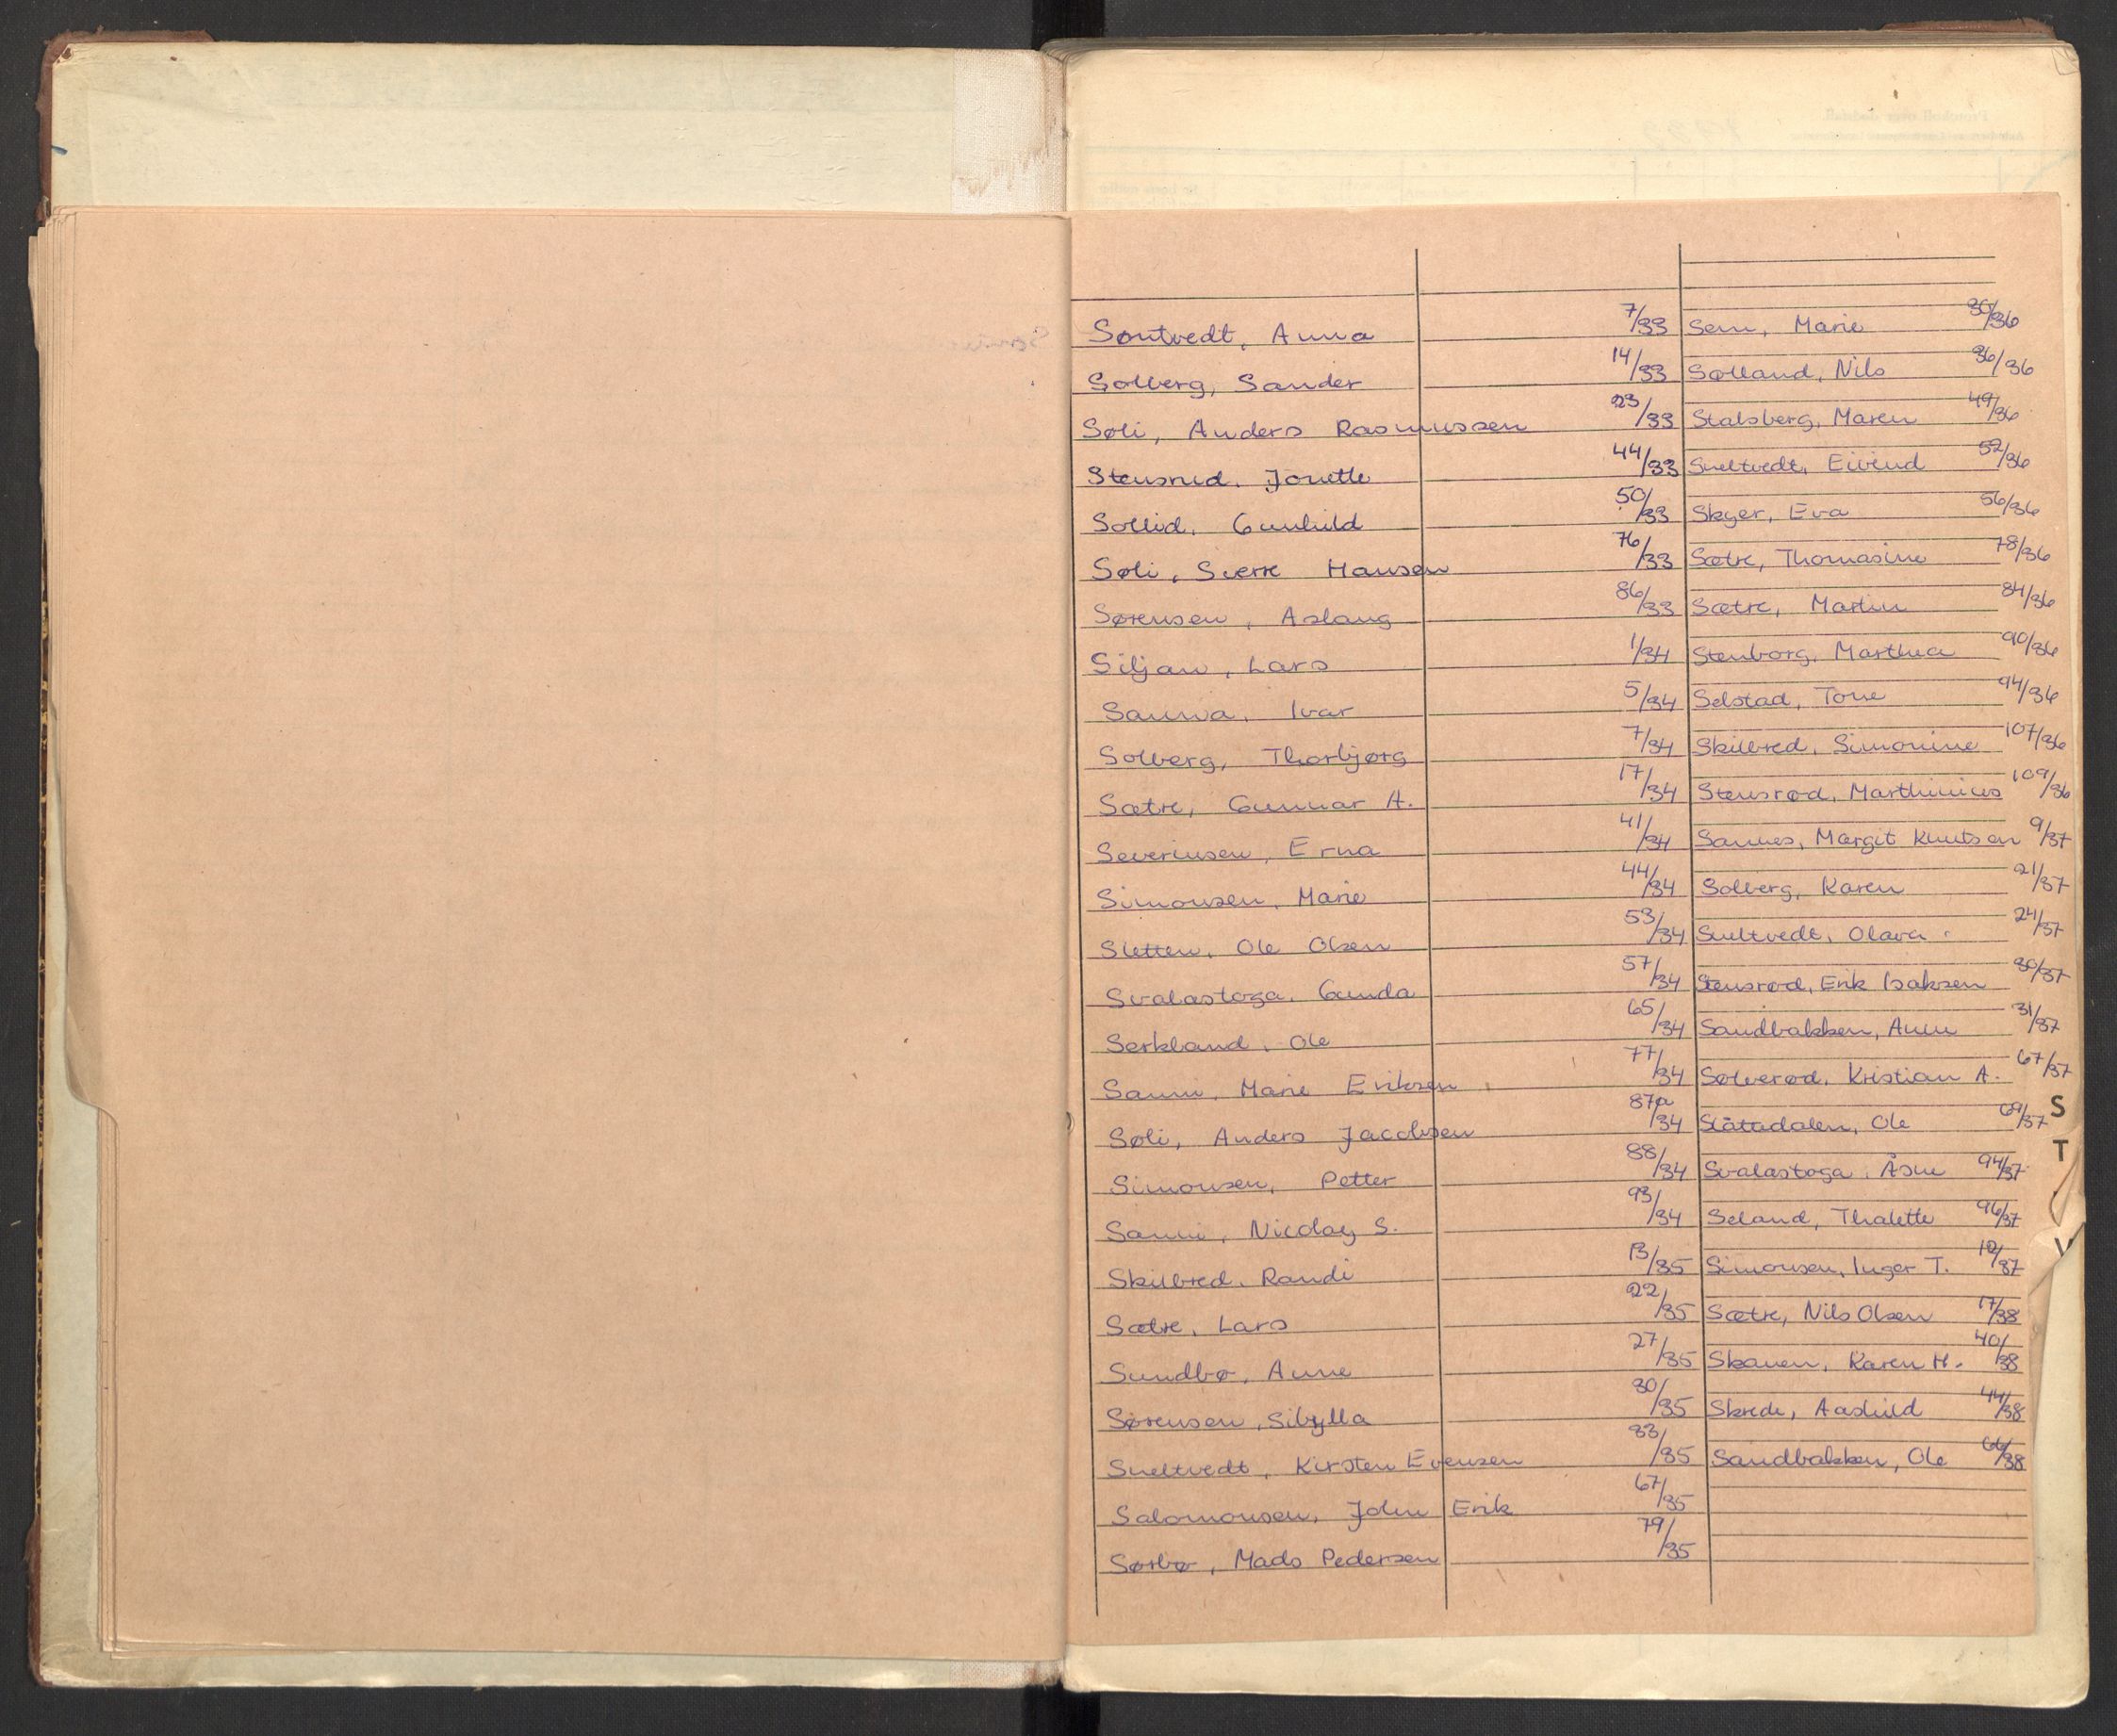 Søntvedt, Anna 7/33
Solberg, Sander 14/33
Søli, Anders Rasmussen 23/33
Stensrud, Jonette 44/33
Sollid, Gunhild 50/33
Søli, Sverre Hansen 76/33
Sørensen, Aslaug 86/33
Siljan, Lars 1/34
Sanna, Ivar 5/34
Solberg, Thorbjørg 7/34
Sætre, Gunnar A. 17/34
Severinsen, Erna 41/34
Simonsen, Marie 44/34
Sletten, Ole Olsen 53/34
Svalastoga, Gunda 57/34
Serkland, Ole 65/34
Sanni, Marie Eriksen 77/34
Søli, Anders Jacobsen 87a/34
Simonsen, Petter 88/34
Sanni, Nicolay S. 93/34
Skilbred, Randi 13/35
Sætre, Lars 22/35
Sundbø, Anne 27/35
Sørensen, Sibylla 30/35
Sneltvedt, Kirsten Evensen 33/35
Salomonsen, John Erik 67/35
Sørbø, Mads Pedersen 79/35
Sem, Marie 30/36
Sølland, Nils 36/36
Stalsberg, Maren 49/36
Sneltvedt, Eivind 52/36
Skyer, Eva 56/36
Sætre, Thomasine 78/36
Sætre, Martin 84/36
Stenborg, Marthea 90/36
Selstad, Tone 94/36
Skilbred, Simonine 107/36
Stensrød, Marthinius 109/36
Sannes, Margit Knutsen 9/37
Solberg, Karen 21/37
Sneltvedt, Olava 24/37
Stensrød, Erik Isaksen 30/37
Sandbakken, Anne 31/37
Sølverød, Kristian A. 67/37
Slåttadalen, Ole 69/37
Svalastoga, Åsne 94/37
Seland, Thalette 96/37
Simonsen, Inger T.
Sætre, Nils Olsen 17/38
Skauen, Karen H. 40/38
Skrede, Aashild 44/38
Sandbakken, Ole 66/38
S
T
V